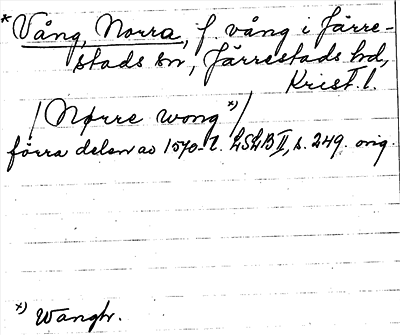 * Vång, Norra, f. vång i Järre-
stads sn, Järrestads hd,
Krist. l.
/Nørre wong x)/
förra delen av 1570-t. LSLB II, s. 249. orig.
x) Wangh.